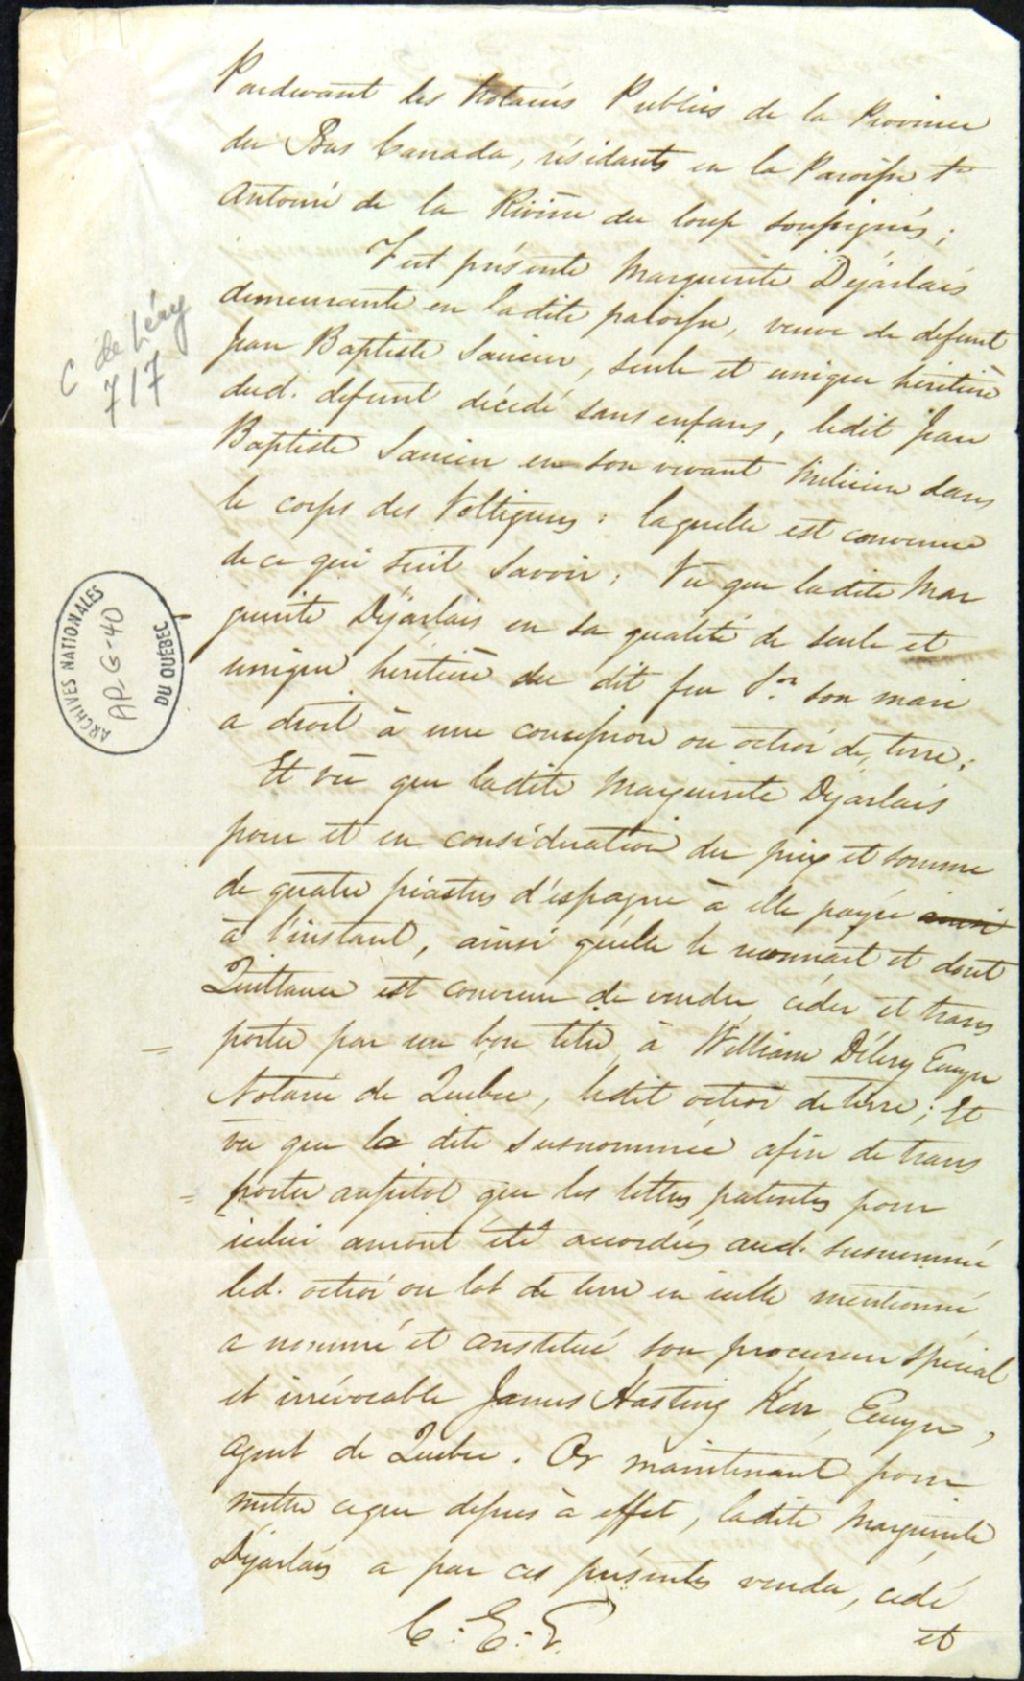 Pardevant les Notaires Publics de la Province
du Bas Canada, résidants en la Paroisse St
Antoine de la Rivière du loup soussignés;
Fut présente Marguerite Déjarlais
demeurante en ladite paroisse, veuve de defunt
Jean Baptiste Saucier, seule et unique héritière
dud. defunt décédé sans enfans, ledit Jean
Baptiste Saucier en son vivant Milicien dans
le corps des Voltigeurs : laquelle est convenue
de ce qui suit Savoir : Vu que ladite Mar
guerite Déjarlais en sa qualité de seule et
unique héritière du dit feu Sr son mari
a droit à une concession ou octroi de terre;
Et vu que ladite Marguerite Déjarlais
pour et en considération du prix et somme
de quatre piastres d'espagne à elle payée
à l'instant, ainsi qu'elle le reconnait et dont
Quittance est convenue de vendre céder et trans
porter par un bon titre à William Déléry Ecuyer
Notaire de Quebec, ledit octroi de terre; Et
vu que la dite susnommée afin de trans
porter aussitot que les lettres patentes pour
icelui auront été accordées aud. susnommé
led. octroi ou lot de terre en icelle mentionné
a nommé et constitué son procureur spécial
et irrévocable James Hasting Kerr, Ecuyer,
agent de Quebec. Or maintenant pour
mettre ce que dessus à effet, ladite Marguerite
Déjarlais a par ces présentes vendu, cédé
et
C. de Léry
717
ARCHIVES NATIONALES
AP-G-40
DU QUÉBEC